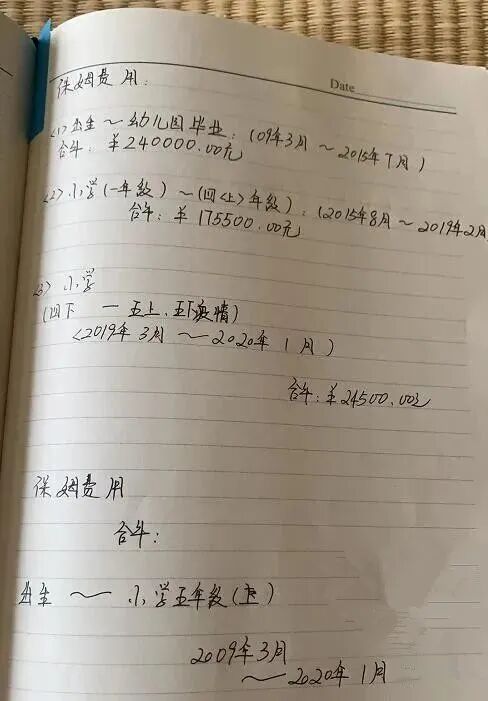 Date
保姆费用:
<1>出生～幼儿园毕业:(09年3月～2015年7月)
合计:¥240000.00元
<2>小学(一年级)～(四<上>年级):(2015年8月～2019年2月
合计:¥175500.00元
<3>小学
(四下一五上,五下疫情)
<2019年3月～2020年1月)
合计:¥24500.00元
保姆费用
合计:
出生～小学五年级(上)
2009年3月
～2020年1月